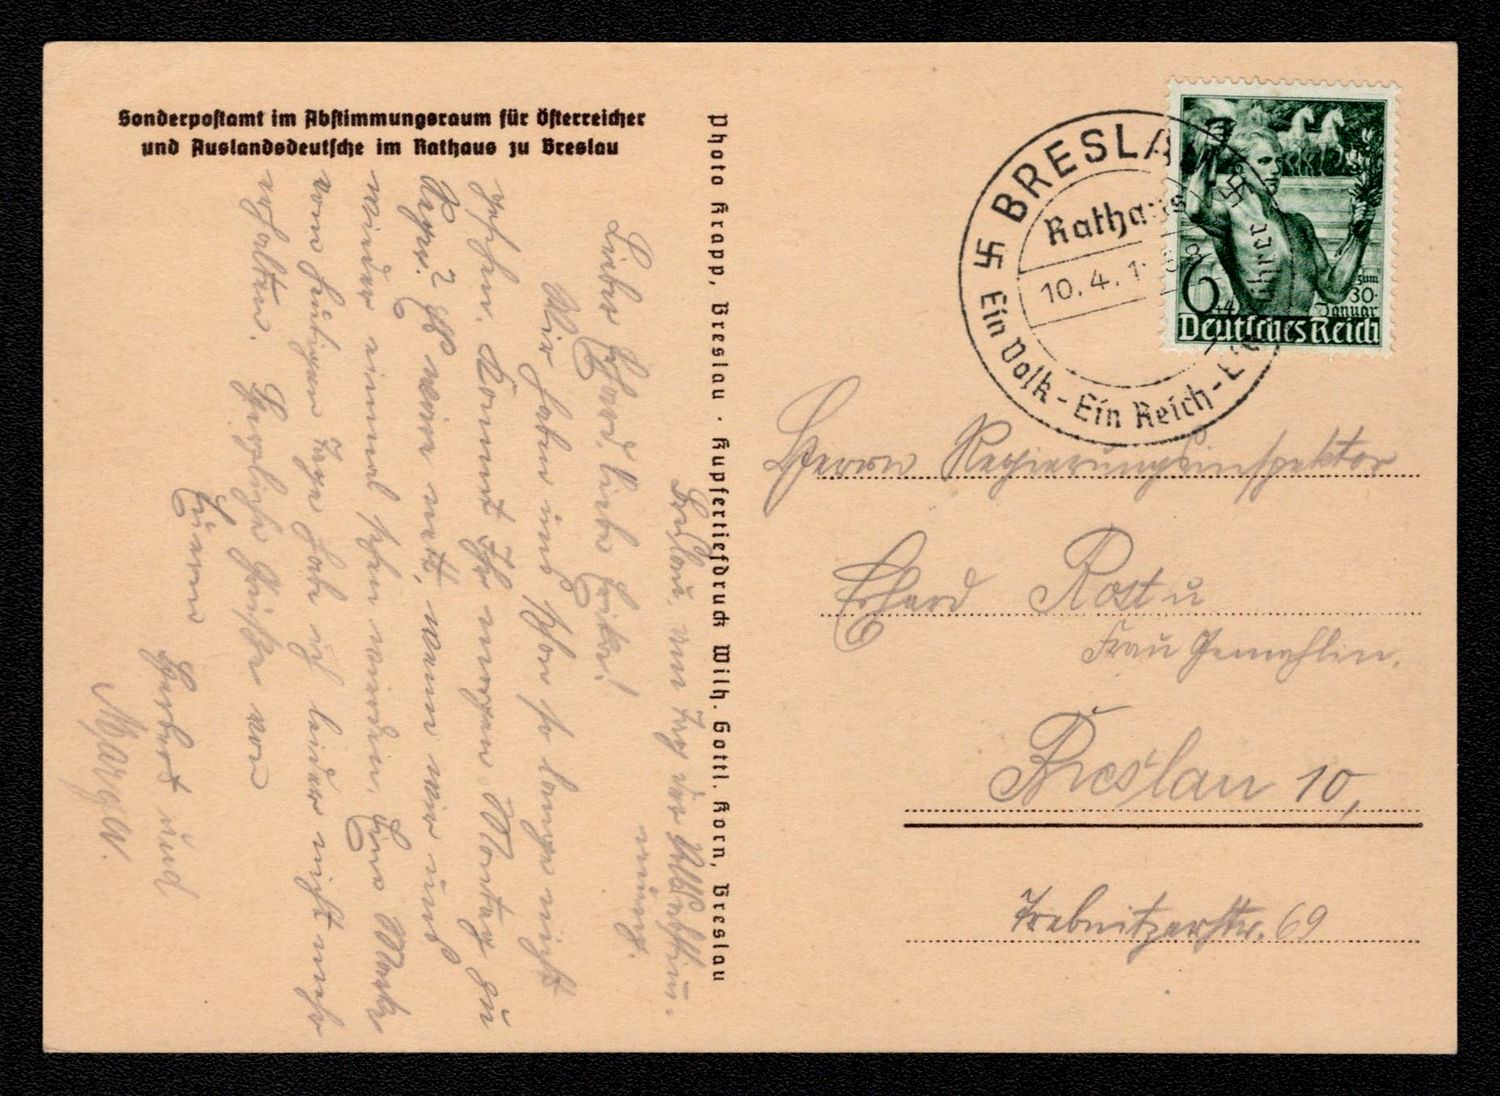 Sonderpostamt im Abstimmungsraum für Österreicher
und Auslandsdeutsche im Rathaus zu Breslau
Photo Krapp, Breslau · Kupfertiefdruck Wilh. Gottl. Korn, Breslau
Breslau, am Tag der Abstim-
mung.
Lieber Erhard, liebe Erika!
Wir haben uns schon so lange nicht
gesehen. Kommt Ihr morgen Montag zu
wenn wir uns
wieder einmal sehen würden. Eine Marke
vom heutigen Tage habe ich leider nicht mehr
erhalten. Herzliche Grüße von
Euern
Herbert und
Margar.
BRESLAU
Rathaus
10.4.1938
Ein Volk - Ein Reich - E
6+4
zum
30.
Januar
Deutsches Reich
Herrn Regierungsinspektor
Erhard Rost u
Frau Gemahlin.
Breslau 10,
Trebnitzerstr. 69